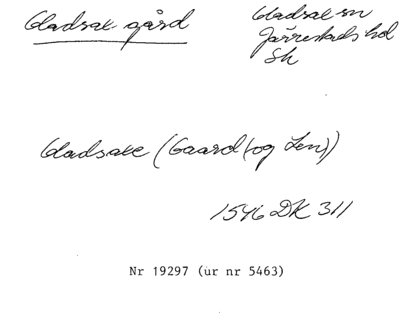 Gladsax gård
Gladsax sn
Järrestads hd
Sk
Gladsaxe (Gaard (og Len))
1546 DK 311
Nr 19297 (ur nr 5463)